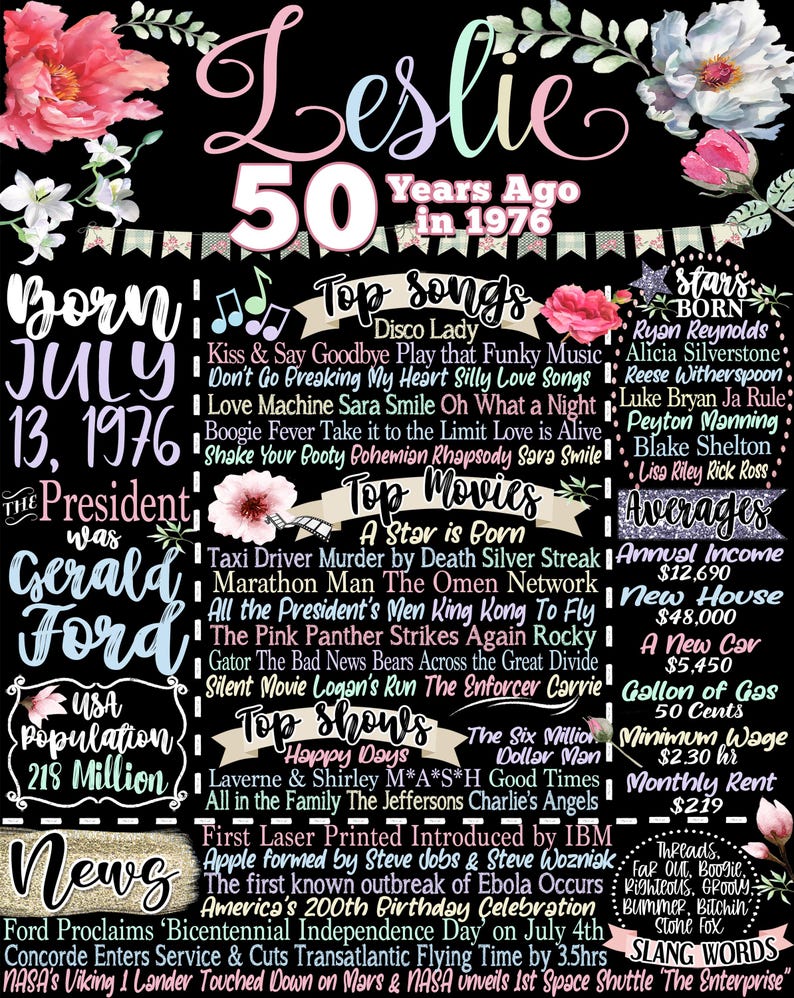 Leslie
50 Years Ago
in 1976
Born
JULY
13, 1976
THE President
was
Gerald
Ford
USA
Population
218 Million
Top Songs
Disco Lady
Kiss & Say Goodbye Play that Funky Music
Don't Go Breaking My Heart Silly Love Songs
Love Machine Sara Smile Oh What a Night
Boogie Fever Take it to the Limit Love is Alive
Shake Your Booty Bohemian Rhapsody Sara Smile
Top Movies
A Star is Born
Taxi Driver Murder by Death Silver Streak
Marathon Man The Omen Network
All the President's Men King Kong To Fly
The Pink Panther Strikes Again Rocky
Gator The Bad News Bears Across the Great Divide
Silent Movie Logan's Run The Enforcer Carrie
Top Shows
Happy Days
The Six Million
Dollar Man
Laverne & Shirley M*A*S*H Good Times
All in the Family The Jeffersons Charlie's Angels
Stars
BORN
Ryan Reynolds
Alicia Silverstone
Reese Witherspoon
Luke Bryan Ja Rule
Peyton Manning
Blake Shelton
Lisa Riley Rick Ross
Averages
Annual Income
$12,690
New House
$48,000
A New Car
$5,450
Gallon of Gas
50 Cents
Minimum Wage
$2.30 hr
Monthly Rent
$219
News
First Laser Printed Introduced by IBM
Apple formed by Steve Jobs & Steve Wozniak
The first known outbreak of Ebola Occurs
America's 200th Birthday Celebration
Ford Proclaims 'Bicentennial Independence Day' on July 4th
Concorde Enters Service & Cuts Transatlantic Flying Time by 3.5hrs
NASA's Viking 1 Lander Touched Down on Mars & NASA unveils 1st Space Shuttle "The Enterprise"
Threads,
Far Out, Boogie,
Righteous, Groovy,
Bummer, Bitchin'
Stone Fox
SLANG WORDS